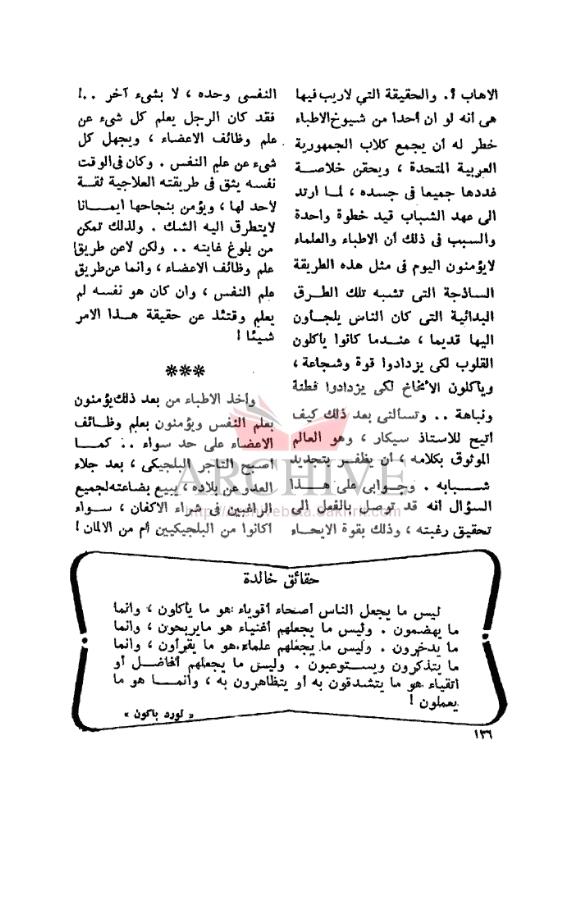 الاهاب ؟. والحقيقة التي لاريب فيها
هى أنه لو ان أحدا من شيوخ الاطباء
خطر له أن يجمع كلاب الجمهورية
العربية المتحدة ، ويحقن خلاصة
غددها جميعا فى جسده ، لما ارتد
الى عهد الشباب قيد خطوة واحدة
والسبب فى ذلك أن الاطباء والعلماء
لايؤمنون اليوم فى مثل هذه الطريقة
الساذجة التى تشبه تلك الطرق
البدائية التى كان الناس يلجأون
اليها قديما ، عندما كانوا ياكلون
القلوب لكى يزدادوا قوة وشجاعة ،
وياكلون الأمخاخ لكى يزدادوا فطنة
ونباهة .. وتسألنى بعد ذلك كيف
أتيح للاستاذ سيكار ، وهو العالم
الموثوق بكلامه ، ان يظفر بتجديد
شبابه . وجوابى على هذا
السؤال انه قد توصل بالفعل الى
تحقيق رغبته ، وذلك بقوة الايحاء
النفسى وحده ، لا بشىء آخر ..!
فقد كان الرجل يعلم كل شىء عن
علم وظائف الاعضاء ، ويجهل كل
شىء عن علم النفس . وكان فى الوقت
نفسه يثق فى طريقته العلاجية ثقة
لاحد لها ، ويؤمن بنجاحها ايمانا
لايتطرق اليه الشك . ولذلك تمكن
من بلوغ غايته .. ولكن لاعن طريق
علم وظائف الاعضاء ، وانما عن طريق
علم النفس ، وان كان هو نفسه لم
يعلم وقتئذ عن حقيقة هذا الامر
شيئا !
***
وأخذ الاطباء من بعد ذلك يؤمنون
بعلم النفس ويؤمنون بعلم وظائف
الاعضاء على حد سواء .. كما
أصبح التاجر البلجيكى ، بعد جلاء
العدو عن بلاده ، يبيع بضاعته لجميع
الراغبين فى شراء الاكفان ، سواء
اكانوا من البلجيكيين أم من الالمان !
حقائق خالدة
ليس ما يجعل الناس أصحاء أقوياء هو ما يأكلون ، وانما
ما يهضمون . وليس ما يجعلهم أغنياء هو مايربحون ، وانما
ما يدخرون . وليس ما يجعلهم علماء هو ما يقرأون ، وانما
ما يتذكرون ويستوعبون . وليس ما يجعلهم أفاضل أو
أتقياء هو ما يتشدقون به أو يتظاهرون به ، وانما هو ما
يعملون !
« لورد باكون »
١٣٦
ARCHIVE